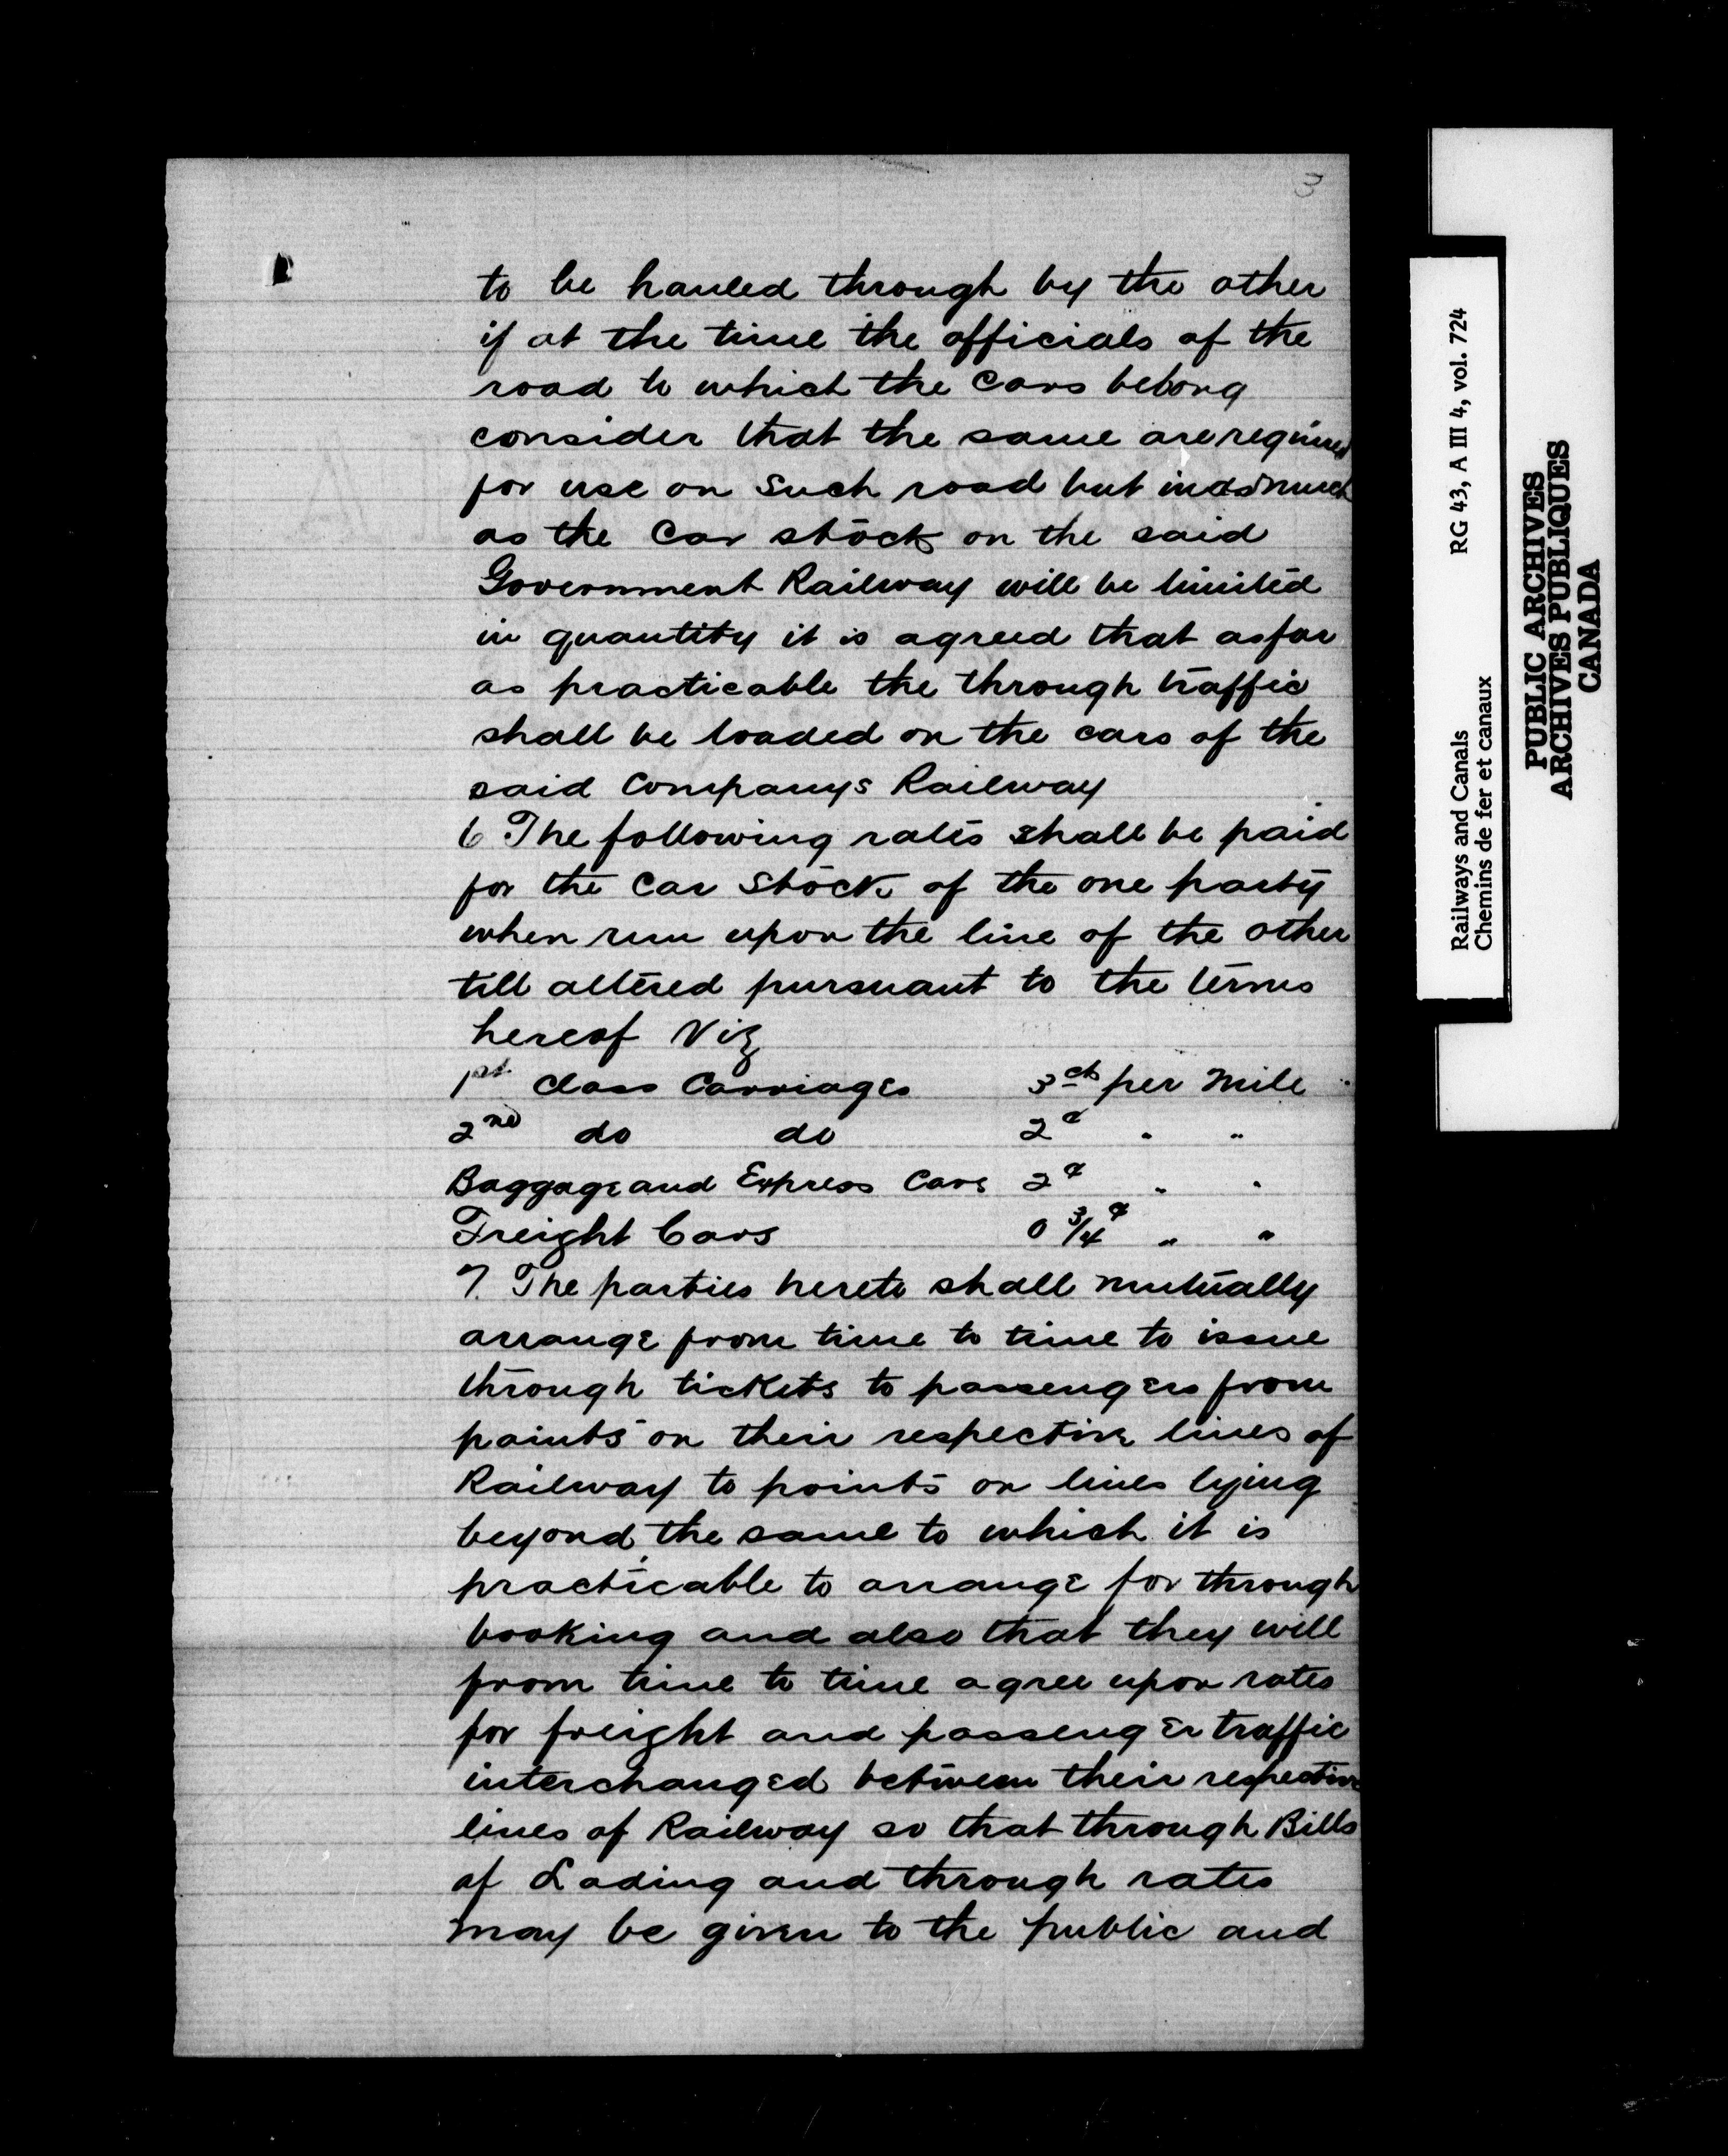 3
to be hauled through by the other
if at the time the officials of the
road to which the Cars belong
consider that the same are required
for use on such road but inasmuch
as the Car stock on the said
Government Railway will be limited
in quantity it is agreed that as far
as practicable the through traffic
shall be loaded on the cars of the
said Companys Railway
6 The following rates shall be paid
for the Car Stock of the one party
when run upon the line of the other
till altered pursuant to the terms
hereof Viz
1st Class Carriages 3 cts per Mile
2nd do do 2c " "
Baggage and Express Cars 2c " "
Freight Cars 0 3/4c " "
7. The parties hereto shall mutually
arrange from time to time to issue
through tickets to passengers from
points on their respective lines of
Railway to points on lines lying
beyond the same to which it is
practicable to arrange for through
booking and also that they will
from time to time agree upon rates
for freight and passenger traffic
interchanged between their respective
lines of Railway so that through Bills
of Lading and through rates
may be given to the public and
Railways and Canals RG 43, A III 4, vol. 724
Chemins de fer et canaux
PUBLIC ARCHIVES
ARCHIVES PUBLIQUES
CANADA